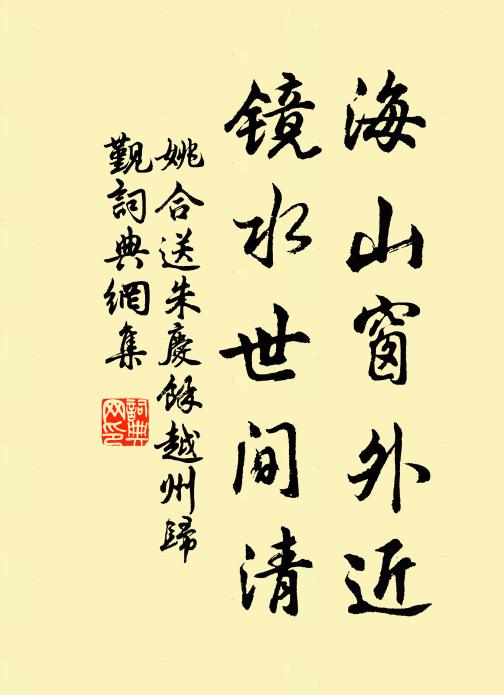 海山窗外近
镜水世间清
姚合送朱慶餘越州歸
觐詞典網集
詞典
网印